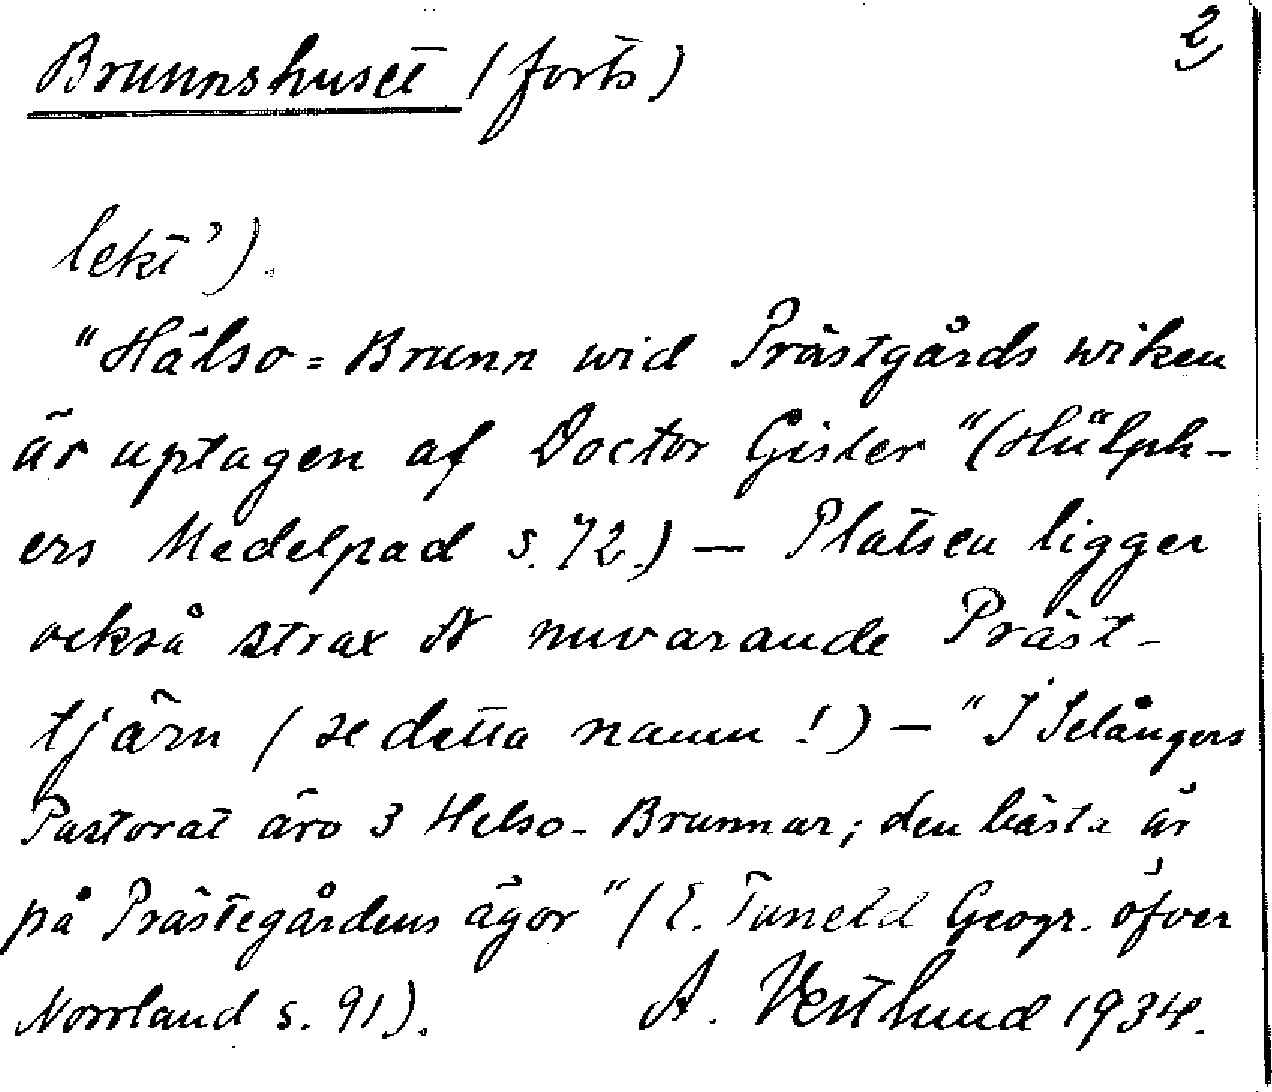 2)
Brunnshuset (forts)
lekt').
"Hälso=Brunn wid Prästgårds wiken
är uptagen af Doctor Gisler" (Hülph-
ers Medelpad s. 72.) — Platsen ligger
också strax N nuvarande Präst-
tjärn (se detta namn!) — "I Selångers
Pastorat äro 3 Helso-Brunnar; den bästa är
på Prästegårdens ägor" (E. Tuneld Geogr. öfver
Norrland s. 91). A. Vestlund 1934.